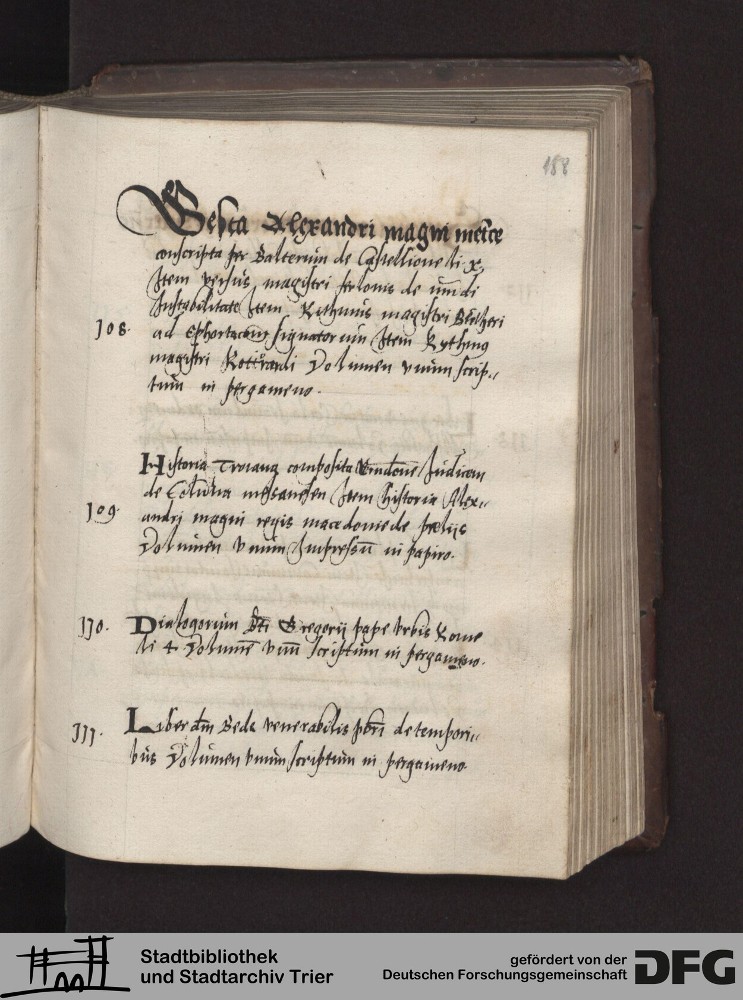 188
Gesta Alexandri magni metrce
conscripta per Galterum de Castellione li x
Item versus magistri serlonis de mundi
Instabilitate Item Rithmus magistri
108. ad signatorum Item Rythmus
magistri Volumen vnum scrip„
tum in pergameno.
Historia Troiana composita Iudicem
de Columna mesanensem Item historia Alex„
109. andri magni regis macedonie de prelijs
Volumen vnum Impressu in papiro.
110. Dialogorum Bti Gregorij pape vrbis Rome
li 4 Volume vnu scriptum in pergameno.
111. Liber dni Bede venerabilis pbri de tempori„
bus Volumen vnum scriptum in pergameno
Stadtbibliothek
und Stadtarchiv Trier
gefördert von der
Deutschen Forschungsgemeinschaft
DFG